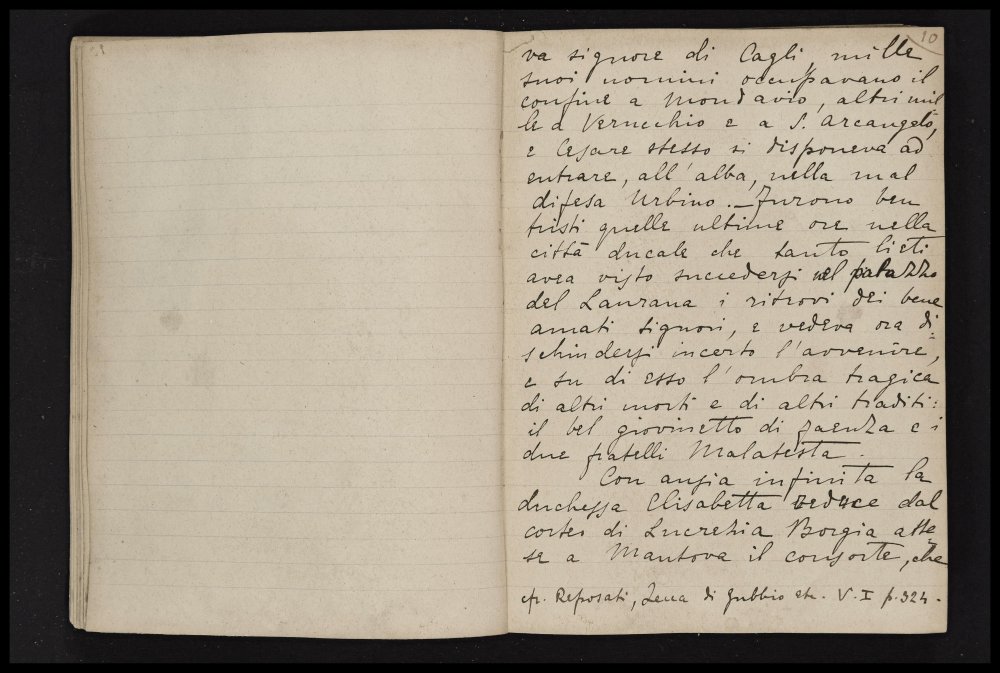 10
va signore di Cagli, mille
suoi uomini occupavano il
confine a Mondavio, altri mil
le a Verucchio e a S. Arcangelo,
e Cesare stesso si disponeva ad
entrare, all'alba, nella mal
difesa Urbino. – Furono ben
tristi quelle ultime ore nella
città ducale che tanto lieti
avea visto succedersi nel palazzo
del Laurana i ritrovi dei bene
amati signori, e vedeva ora di=
schindersi incerto l'avvenire,
e su di esso l'ombra tragica
di altri morti e di altri traditi:
il bel giovinetto di Faenza e i
due fratelli Malatesta.
Con ansia infinita la
duchessa Elisabetta reduce dal
corteo di Lucrezia Borgia atte=
se a Mantova il consorte, che
cfr. Reposati, Zecca di Gubbio etc. V. I p. 324.